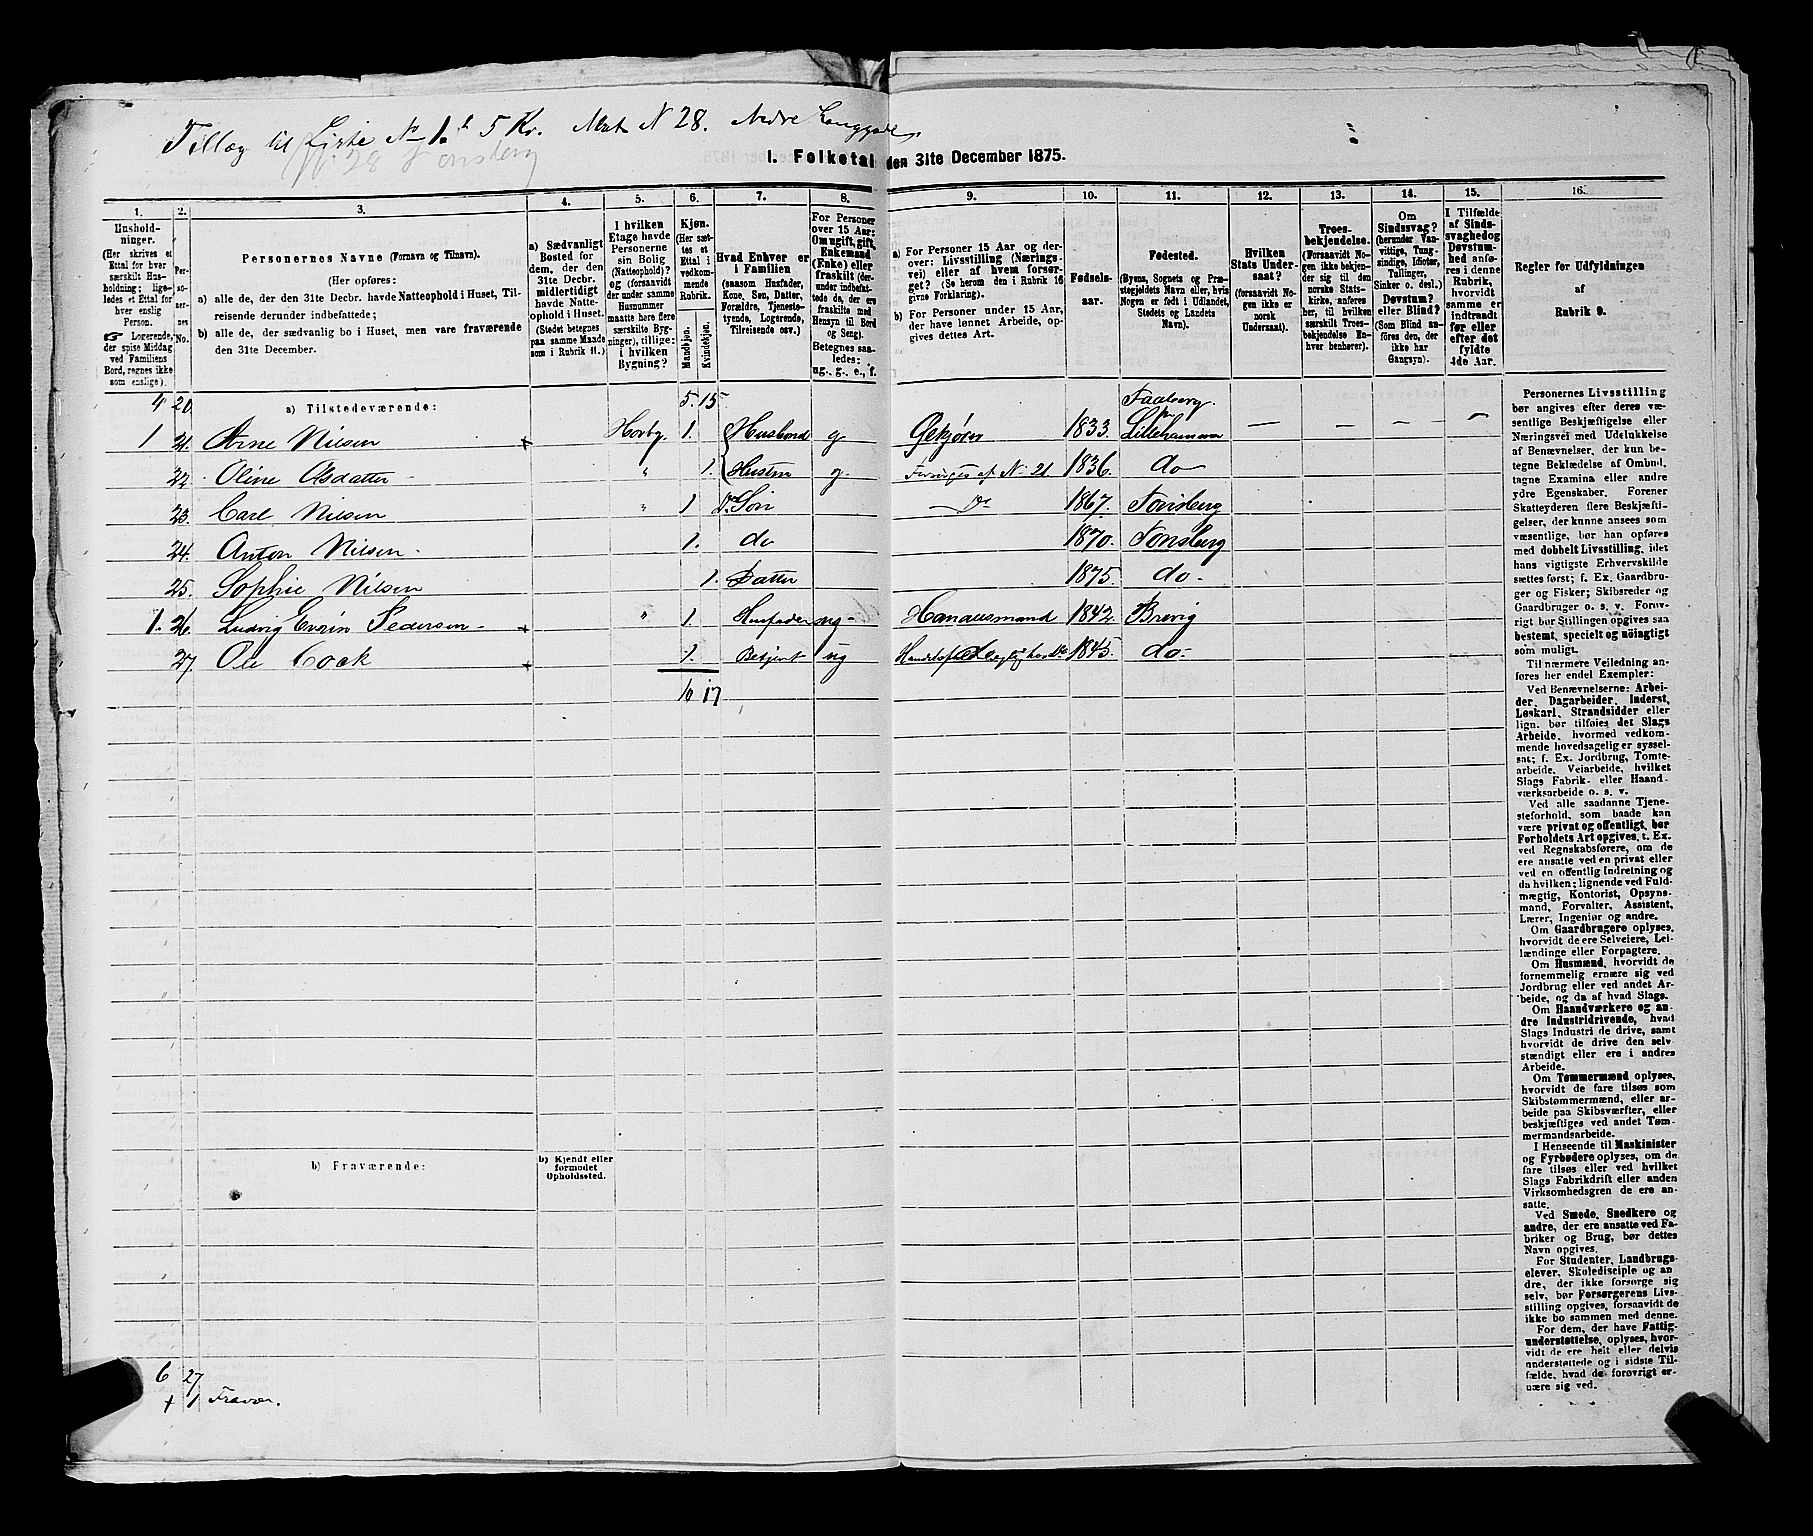 Tillæg til Liste No 1. 5 Kr. Mat N 28. Nedre Langgade
No 28 Tonsberg
I. Folketal den 31te December 1875.
1. 2. 3. 4. 5. 6. 7. 8. 9. 10. 11. 12. 13. 14. 15. 16.
Husholdninger.
(Her skrives et Ettal for hver særskilt Husholdning; ligeledes et Ettal for hver enslig Person.
☞ Logerende, der spise Middag ved Familiens Bord, regnes ikke som enslige).
Personernes No.
Personernes Navne (Fornavn og Tilnavn).
(Her opføres:
a) alle de, der den 31te Decbr. havde Natteophold i Huset, Tilreisende derunder indbefattede;
b) alle de, der sædvanlig bo i Huset, men vare fraværende den 31te December.
a) Sædvanligt Bosted for dem, der den 31te Decbr. midlertidigt havde Natteophold i Huset.
(Stedet betegnes paa samme Maade som i Rubrik 11.)
I hvilken Etage havde Personerne sin Bolig (Natteophold)? og (forsaavidt der under samme Husnummer maatte høre flere særskilte Bygninger), tillige: i hvilken Bygning?
Kjøn.
(Her sættes et Ettal i vedkommende Rubrik.
Mandkjøn. Kvindekjøn.
Hvad Enhver er i Familien
(saasom Husfader, Kone, Søn, Datter, Forældre, Tjenestetyende, Logerende, Tilreisende osv.)
For Personer over 15 Aar: Om ugift, gift, Enkemand (Enke) eller fraskilt (derunder indbefattede da, der ere fraskilte med Hensyn til Bord og Seng).
Betegnes saaledes: ug., g., e., f.
a) For Personer 15 Aar og derover: Livsstilling (Næringsvei) eller af hvem forsørget? (Se herom den i Rubrik 16 givne Forklaring).
b) For Personer under 15 Aar, der have lønnet Arbeide, opgives dettes Art.
Fødselsaar.
Fødested.
(Byens, Sognets og Præstegjeldets Navn eller, hvis Nogen er født i Udlandet, Stedets og Landets Navn).
Hvilken Stats Undersaat?
(forsaavidt Nogen ikke er norsk Undersaat).
Troesbekjendelse.
(Forsaavidt Nogen ikke bekjender sig til den norske Statskirke, anføres her, til hvilket særskilt Troesbekjendelse Enhver benhører).
Om Sindssvag? (herunder Vanvittige, Tungsindige, Idioter, Tullinger, Sinker o. desl.) Døvstum? eller Blind?
(Som Blind anføres den, der ikke har Gangsyn).
I Tilfælde af Sindssvaghed og Døvstumhed anføres i denne Rubrik, hvorvidt samme er indtraadt før eller efter det fyldte 4de Aar.
Regler for Udfyldningen af Rubrik 9.
4 20 a) Tilstedeværende: 5. 15 Faaberg
1 21. Arne Nilsen Hovby. 1. Husbond g. 1833. Lillehammer — — — —
22 Oline Olsdatter " 1. Hustru g. Forsørges af N. 21 1836. do
23. Carl Nilsen " 1 Søn do 1867. Tonsberg
24. Anton Nilsen 1. do 1870. Tonsberg
25. Sophie Nilsen 1. Datter 1875. do
1. 26. Ludvig Pedersen " 1. Husfader ug. 1842. Brevig
27. Ole Cock 1. Betjent ug 1845. do.
10 17
b) Fraværende:
b) Kjendt eller formodet Opholdssted.
6 27
+ 1 Fravær.
Personernes Livsstilling bør angives efter deres væsentlige Beskjæftigelse eller Næringsvei med Udelukkelse af Benævnelser, der kun betegne Beklædelse af Ombud, tagne Examina eller andre ydre Egenskaber. Forener Skatteyderen flere Beskjæftigelser, der kunne ansees som væsentlige, bør han opføres med dobbelt Livsstilling, idet hans vigtigste Erhvervskilde sættes først; f. Ex. Gaardbruger og Fisker; Skibsreder og Gaardbruger o. s. v. Forøvrigt bør Stillingen opgives saa bestemt, specielt og nøiagtigt som muligt.
Til nærmere Veiledning anføres her endel Exempler:
Ved Benævnelserne: Arbeider, Dagarbeider, Inderst, Løskarl, Strandsidder eller lign. bør tilføies det Slags Arbeide, hvormed vedkommende hovedsagelig er sysselsat; f. Ex. Jordbrug, Tomtearbeide, Veiarbeide, hvilket Slags Fabrik- eller Haandværksarbeide o. s. v.
Ved alle saadanne Tjenesteforhold, som baade kan være privat og offentligt, bør Forholdets Art opgives, t. Ex. ved Regnskabsførere, om de ere ansatte ved en privat eller ved en offentlig Indretning og da hvilken; lignende ved Fuldmægtig, Kontorist, Opsynsmand, Forvalter, Assistent, Lærer, Ingeniør og andre.
Om Gaardbrugere oplyses, hvorvidt de ere Selveiere, Leilændinge eller Forpagtere.
Om Husmænd, hvorvidt de fornemmelig ernære sig ved Jordbrug eller ved andet Arbeide, og da af hvad Slags.
Om Haandværkere og andre Industridrivende, hvad Slags Industri de drive, samt hvorvidt de drive den selvstændigt eller ere i andres Arbeide.
Om Tømmermænd oplyses, hvorvidt de fare tilsøs som Skibstømmermænd, eller arbeide paa Skibsværfter, eller beskjæftiges ved andet Tømmermandsarbeide.
I Henseende til Maskinister og Fyrbødere oplyses, om de fare tilsøs eller ved hvilket Slags Fabrikdrift eller anden Virksomhedsgren de ere ansatte.
Ved Smede, Snedkere og andre, der ere ansatte ved Fabriker og Brug, bør dettes Navn opgives.
For Studenter, Landbrugselever, Skoledisciple og andre, der ikke forsørge sig selv, bør Forsørgerens Livsstilling opgives, forsaavidt de ikke bo sammen med denne.
For dem, der have Fattigunderstøttelse, oplyses, hvorvidt de ere helt eller delvis understøttede og i sidste Tilfælde, hvad de forøvrigt ernære sig ved.